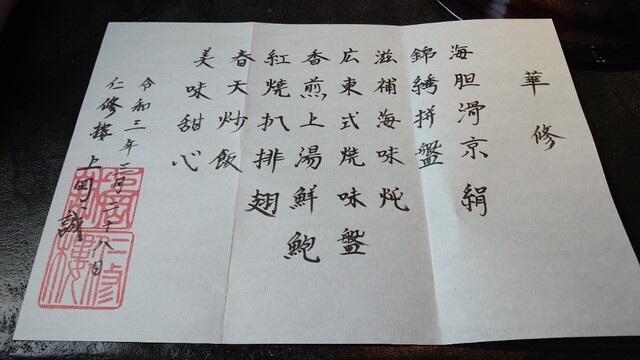 華修
海胆滑京絹
錦綉拼盤
滋補海味炖
広東式焼味盤
香煎上湯鮮鮑
紅焼扒排翅
春天炒飯
美味甜心
令和三年二月二十八日
仁修樓上岡誠